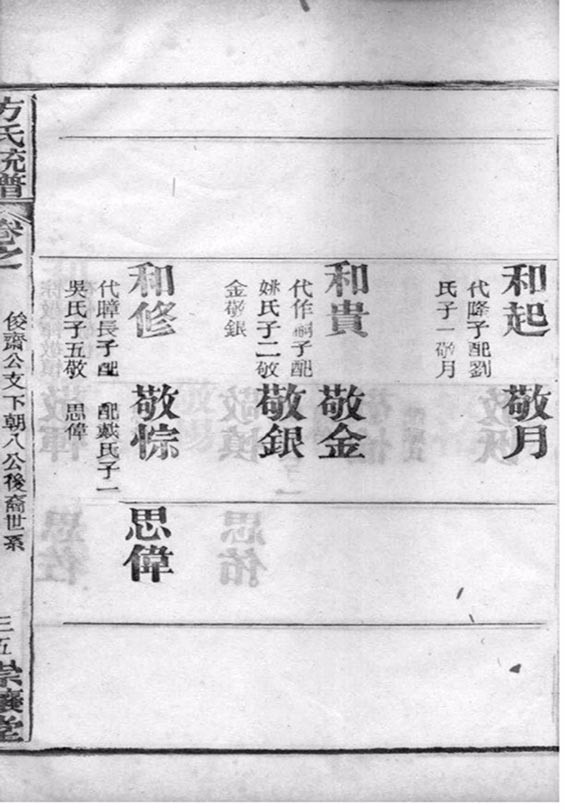 和起
代隆子配劉
氏子一敬月
敬月
和貴
代作嗣子配
姚氏子二敬
金敬銀
敬金
敬銀
和修
代暲長子配
吳氏子五敬
敬悰
配戴氏子一
思偉
思偉
方氏統譜
卷之一
俊齋公支下朝八公後裔世系
三五
堂